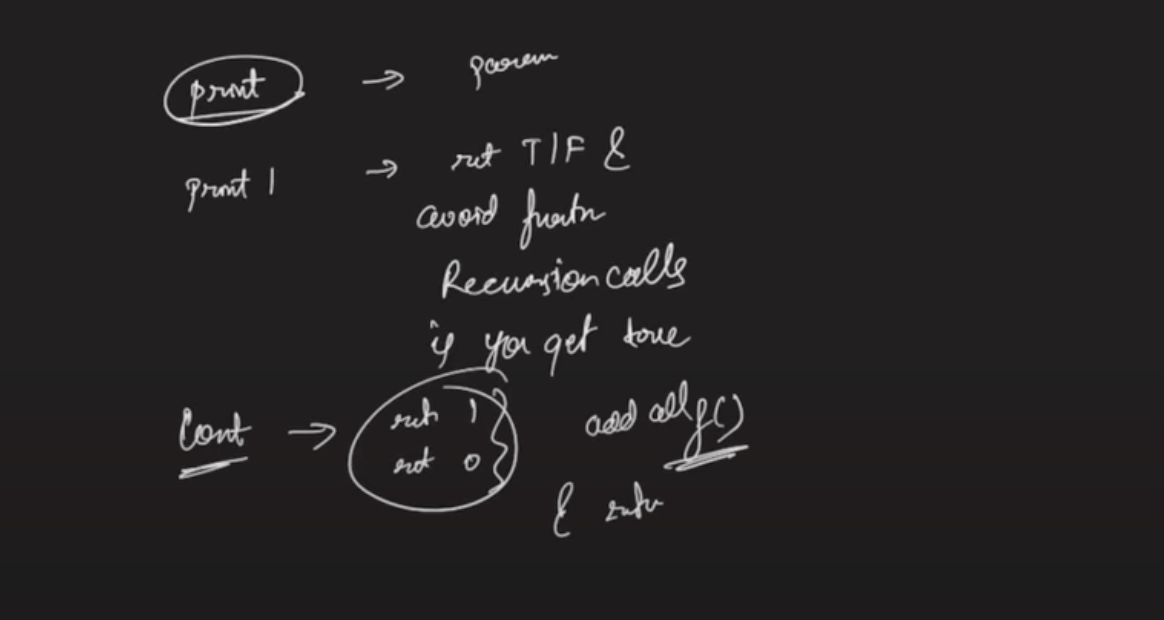 print → param
print 1 → ret T/F &
avoid further
Recursion calls
if you get true
Cont → retn 1 add all f()
ret 0
& retu